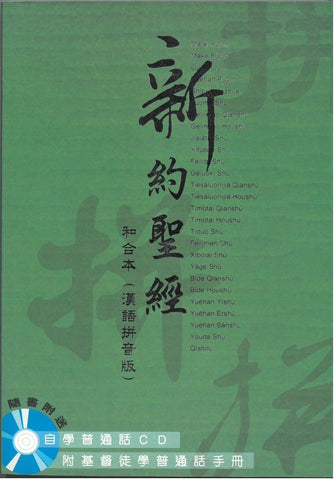 新約聖經
和合本（漢語拼音版）
Mǎtài Fúyīn
Mǎkě Fúyīn
Yuēhàn Fúyīn
Luómǎ Shū
Gēlínduō Qiánshū
Gēlínduō Hòushū
Jiālātài Shū
Yǐfúsuǒ Shū
Féilìbǐ Shū
Gēluóxī Shū
Tiēsāluóníjiā Qiánshū
Tiēsāluóníjiā Hòushū
Tímótài Qiánshū
Tímótài Hòushū
Tíduō Shū
Féilìmén Shū
Xībólái Shū
Yǎgè Shū
Bǐdé Qiánshū
Bǐdé Hòushū
Yuēhàn Yīshū
Yuēhàn Èrshū
Yuēhàn Sānshū
Yóudà Shū
Qǐshìlù
拼
拼
音
隨書附送
自學普通話CD
附基督徒學普通話手冊